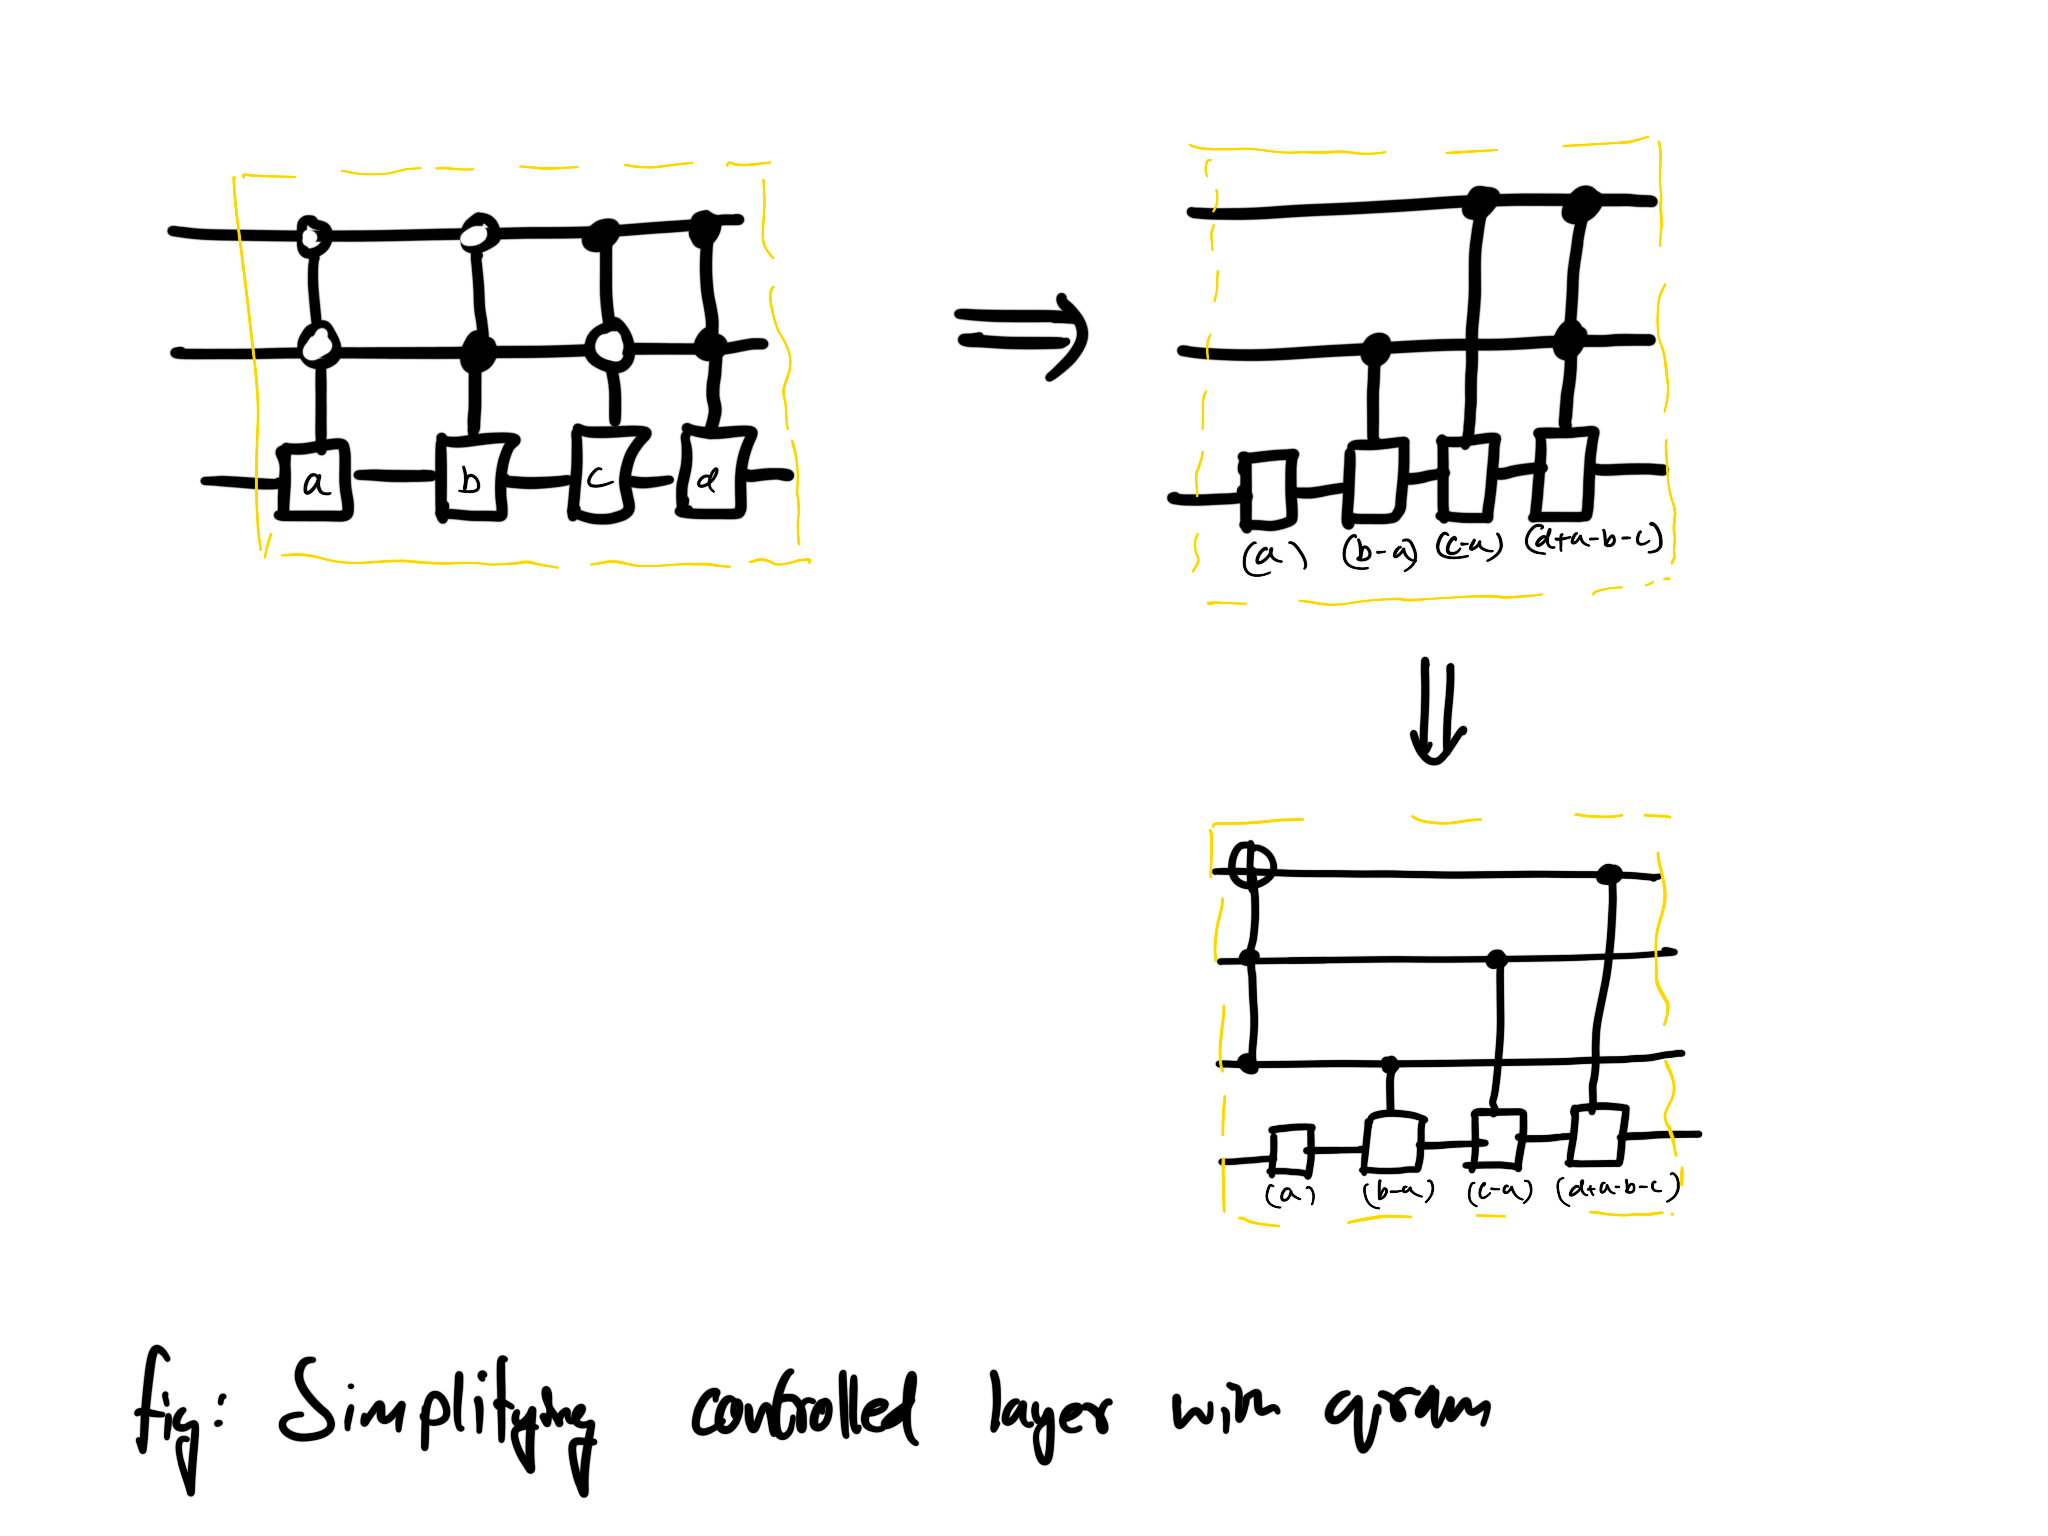 a b c d
(a) (b-a) (c-a) (d+a-b-c)
(a) (b-a) (c-a) (d+a-b-c)
fig: Simplifying controlled layer with qram